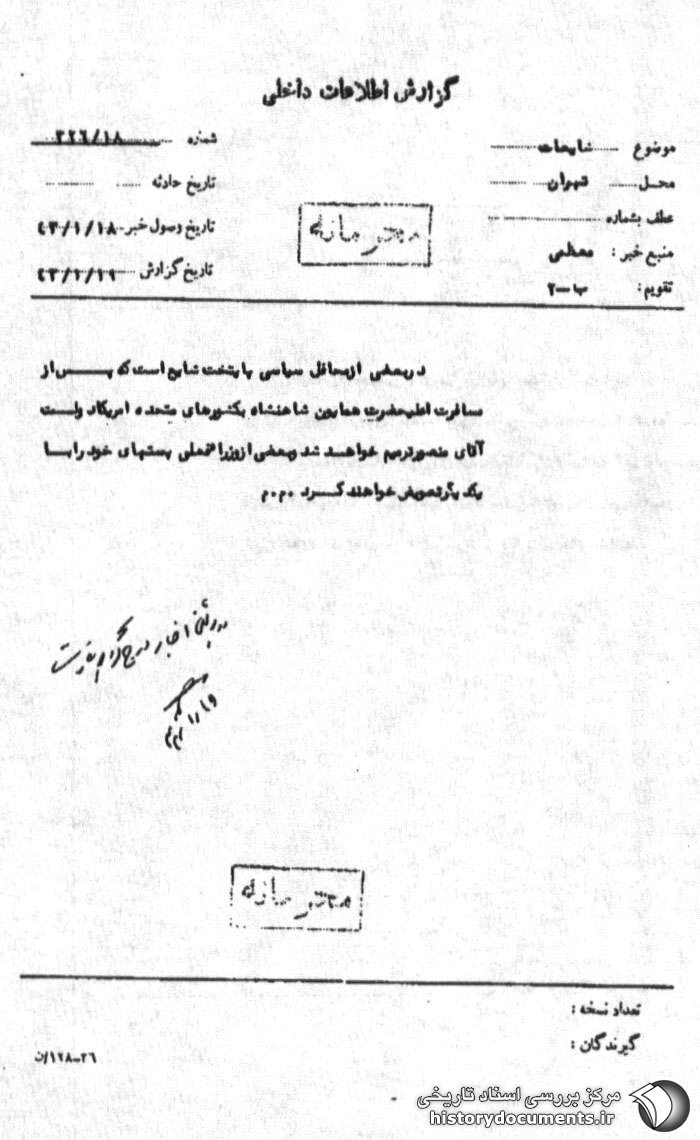 گزارش اطلاعات داخلی
موضوع شایعات
محل تهران
عطف بشماره
منبع خبر : معظمی
تقویم : ب-۲
شماره ۳۲۶/۱۸
تاریخ حادثه
تاریخ وصول خبر ۴۳/۱/۱۸
تاریخ گزارش
محرمانه
دربعضی ازمحافل سیاسی پایتخت شایع است که پس از
مسافرت اعلیحضرت همایون شاهنشاه بکشورهای متحده امریکادولت
آقای منصورترمیم خواهد شد وبعضی ازوزرا شغلی پستهای خودرابا
یک دیگرتعویض خواهند کرد م.م
محرمانه
تعداد نسخه :
گیرندگان :
۳۶-۱۲۸/ن
مرکز بررسی اسناد تاریخی
historydocuments.ir